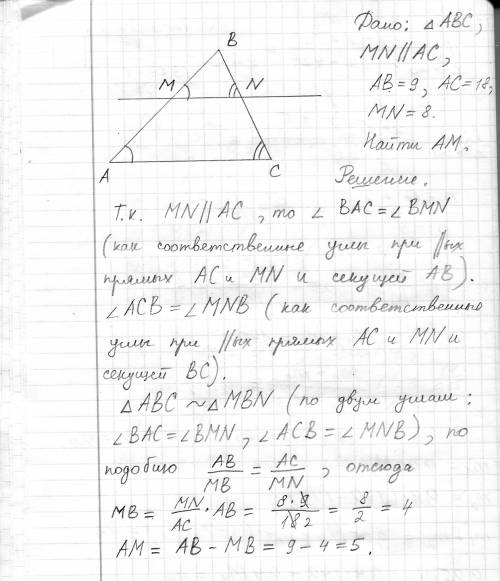 Дано: △ABC,
MN//AC,
AB=9, AC=18,
MN=8.
Найти AM.
B
M
N
A
C
Решение.
Т.к. MN//AC, то ∠ BAC=∠BMN
(как соответственные углы при //ых
прямых AC и MN и секущей AB).
∠ACB = ∠MNB (как соответственные
углы при //ых прямых AC и MN и
секущей BC).
△ABC ~ △MBN (по двум углам:
∠BAC=∠BMN, ∠ACB=∠MNB), по
подобию AB/MB = AC/MN, отсюда
MB = MN/AC · AB = 8·9/18 2 = 8/2 = 4
AM = AB - MB = 9 - 4 = 5.